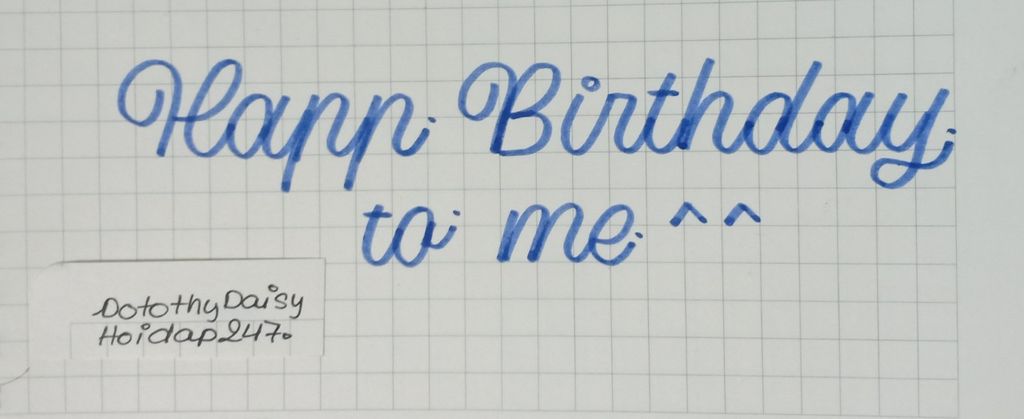 Happ Birthday
to me ^^
DotothyDaisy
Hoidap247.